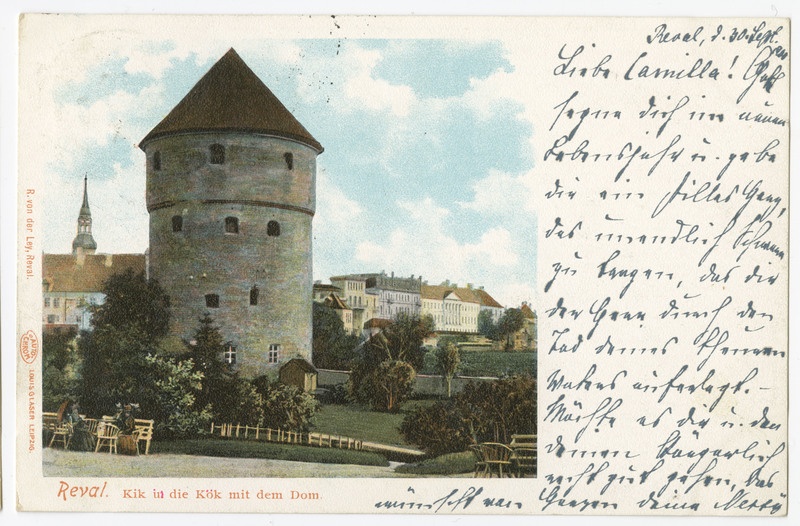 Reval, d. 30. Sept.
Liebe Camilla! Gott
segne dich im neuen
Lebensjahr u. gebe
dir ein stilles Herz,
das unendlich Schwere
zu tragen, das dir
der Herr durch den
Tod deines theuren
Vaters auferlegt. -
Möchte es dir u. den
deinen körperlich
recht gut gehen, das
wünscht von Herzen deine Netty
Reval. Kik in die Kök mit dem Dom.
R. von der Ley, Reval.
LOUIS GLASER LEIPZIG.